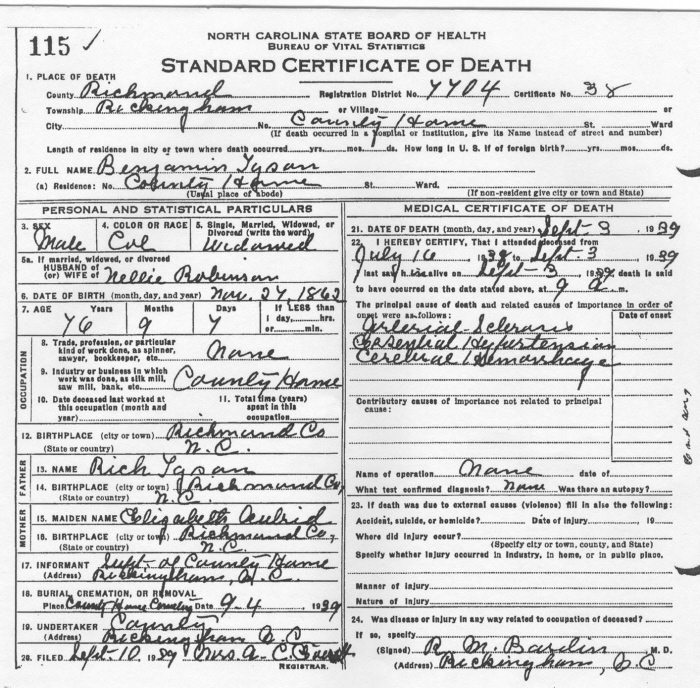 115 ✓
NORTH CAROLINA STATE BOARD OF HEALTH
BUREAU OF VITAL STATISTICS
STANDARD CERTIFICATE OF DEATH
1. PLACE OF DEATH
County Richmond Registration District No. 7704 Certificate No. 38
Township Rockingham or Village or
City No. County Home St. Ward
(If death occurred in a hospital or institution, give its Name instead of street and number)
Length of residence in city or town where death occurred yrs. mos. ds. How long in U. S. if of foreign birth? yrs. mos. ds.
2. FULL NAME Benjamin Tyson
(a) Residence: No. County Home St. Ward.
(Usual place of abode) (If non-resident give city or town and State)
PERSONAL AND STATISTICAL PARTICULARS
3. SEX 4. COLOR OR RACE 5. Single, Married, Widowed, or Divorced (write the word)
Male Col Widowed
5a. If married, widowed, or divorced
HUSBAND of
(or) WIFE of Nellie Robinson
6. DATE OF BIRTH (month, day, and year) Nov. 27, 1862
7. AGE Years Months Days If LESS than
1 day, hrs.
or min.
76 9 7
OCCUPATION
8. Trade, profession, or particular
kind of work done, as spinner,
sawyer, bookkeeper, etc. None
9. Industry or business in which
work was done, as silk mill,
saw mill, bank, etc. County Home
10. Date deceased last worked at
this occupation (month and
year)
11. Total time (years)
spent in this
occupation
12. BIRTHPLACE (city or town) Richmond Co
(State or country) N.C.
FATHER
13. NAME Rich Tyson
14. BIRTHPLACE (city or town) Richmond Co,
(State or country) N.C.
MOTHER
15. MAIDEN NAME Elizabeth
16. BIRTHPLACE (city or town) Richmond Co,
(State or country) N.C.
17. INFORMANT Supt. of County Home
(Address) Rockingham, N.C.
18. BURIAL, CREMATION, OR REMOVAL
Place County Home Cemetery Date 9-4 1939
19. UNDERTAKER County
(Address) Rockingham N.C
20. FILED Sept. 10 1939 Mrs. A. C.
REGISTRAR.
MEDICAL CERTIFICATE OF DEATH
21. DATE OF DEATH (month, day, and year) Sept-3 1939
22. I HEREBY CERTIFY, That I attended deceased from
July 16 1938 to Sept-3 1939
I last saw h is alive on Sept-3 1939 death is said
to have occurred on the date stated above, at 9 a m.
The principal cause of death and related causes of importance in order of
onset were as follows: Date of onset
Arterial Sclerosis
Essential Hypertension
Cerebral Hemorrhage
Contributory causes of importance not related to principal
cause:
Name of operation None date of
What test confirmed diagnosis? None Was there an autopsy?
23. If death was due to external causes (violence) fill in also the following:
Accident, suicide, or homicide? Date of injury 19
Where did injury occur?
(Specify city or town, county, and State)
Specify whether injury occurred in industry, in home, or in public place.
Manner of injury
Nature of injury
24. Was disease or injury in any way related to occupation of deceased?
If so, specify
(Signed) R. M. Bardin M. D.
(Address) Rockingham, N.C